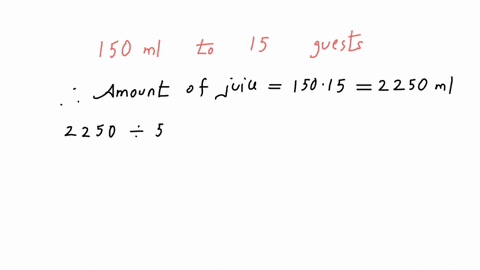 150 ml to 15 guests
∴ Amount of juice = 150·15 = 2250 ml
2250 ÷ 5